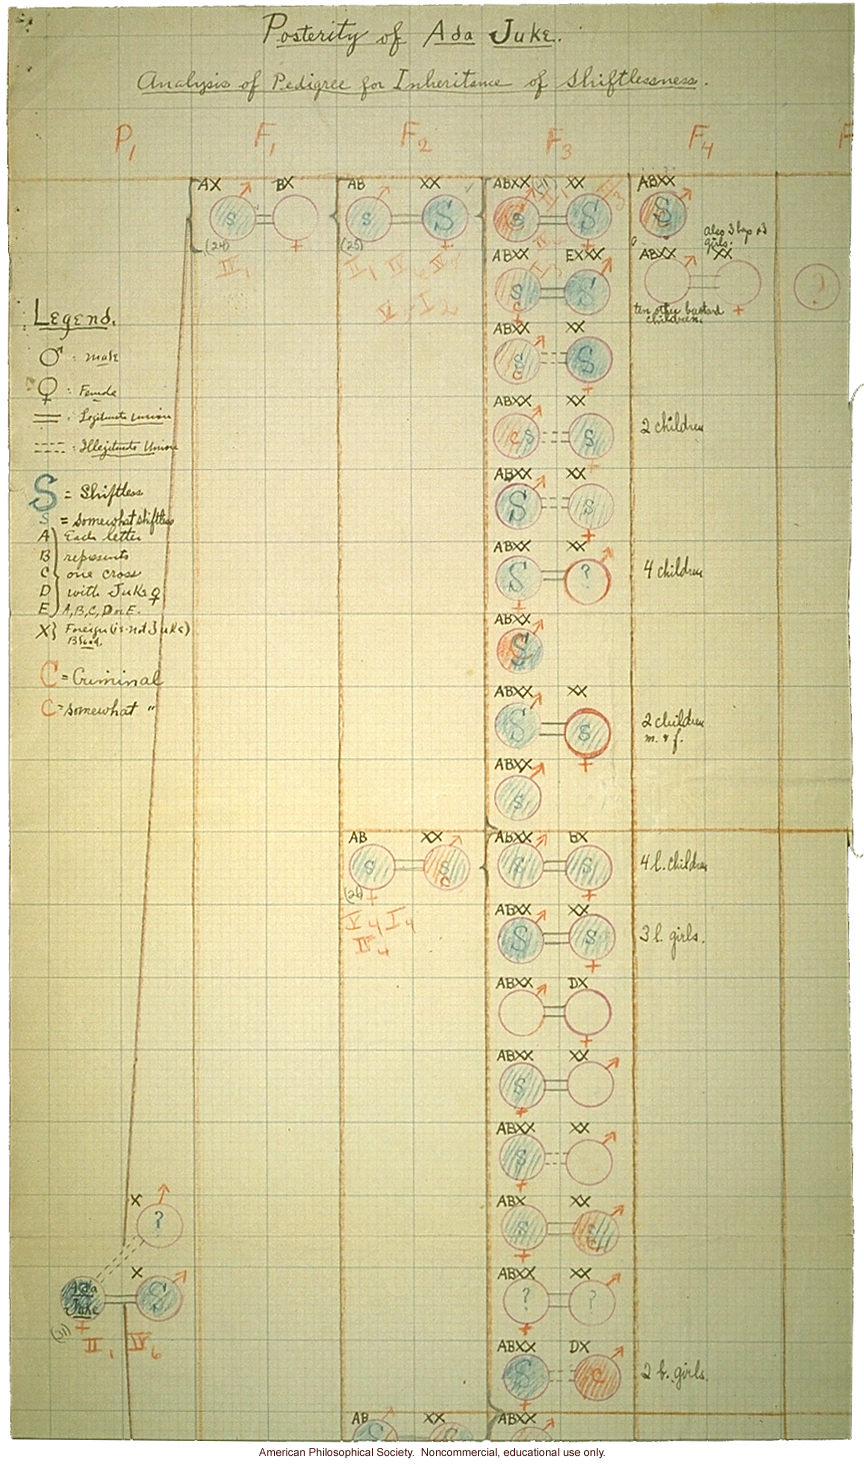 Posterity of Ada Juke.
Analysis of Pedigree for Inheritance of Shiftlessness.
P1 F1 F2 F3 F4 F
AX BX
S
(24)
II1
AB XX
S S
(25)
ABXX XX
S S
ABXX
S
also 3 boys & 3
girls.
ABXX EXXX
S S
ABXX XX
ten other bastard
children.
?
Legend.
♂ : male
♀ : Female
: Legitimate Union
: Illegitimate Union
S = Shiftless
S = Somewhat shiftless
A Each letter
B represents
C one cross
D with Juke ♀
E A, B, C, D or E.
X} Foreign (is not Juke)
Blood.
C = Criminal
C = Somewhat "
ABXX XX
S S
C
ABXX XX
C S S
2 children
ABXX XX
S S
ABXX XX
S ?
4 children
ABXX
S
ABXX XX
S S
2 children
m. & f.
ABXX
S
AB XX
S S
C
(24)
V4 I4
IV4
ABXX BX
S S
4 l. children
ABXX XX
S S
3 l. girls.
ABXX DX
ABXX XX
S
ABXX XX
S
ABX XX
S S
C
ABXX XX
? ?
ABXX DX
S C
2 b. girls.
X
?
X
Ada
Juke
S
II1 IV6
AB XX
S S
ABXX
American Philosophical Society. Noncommercial, educational use only.